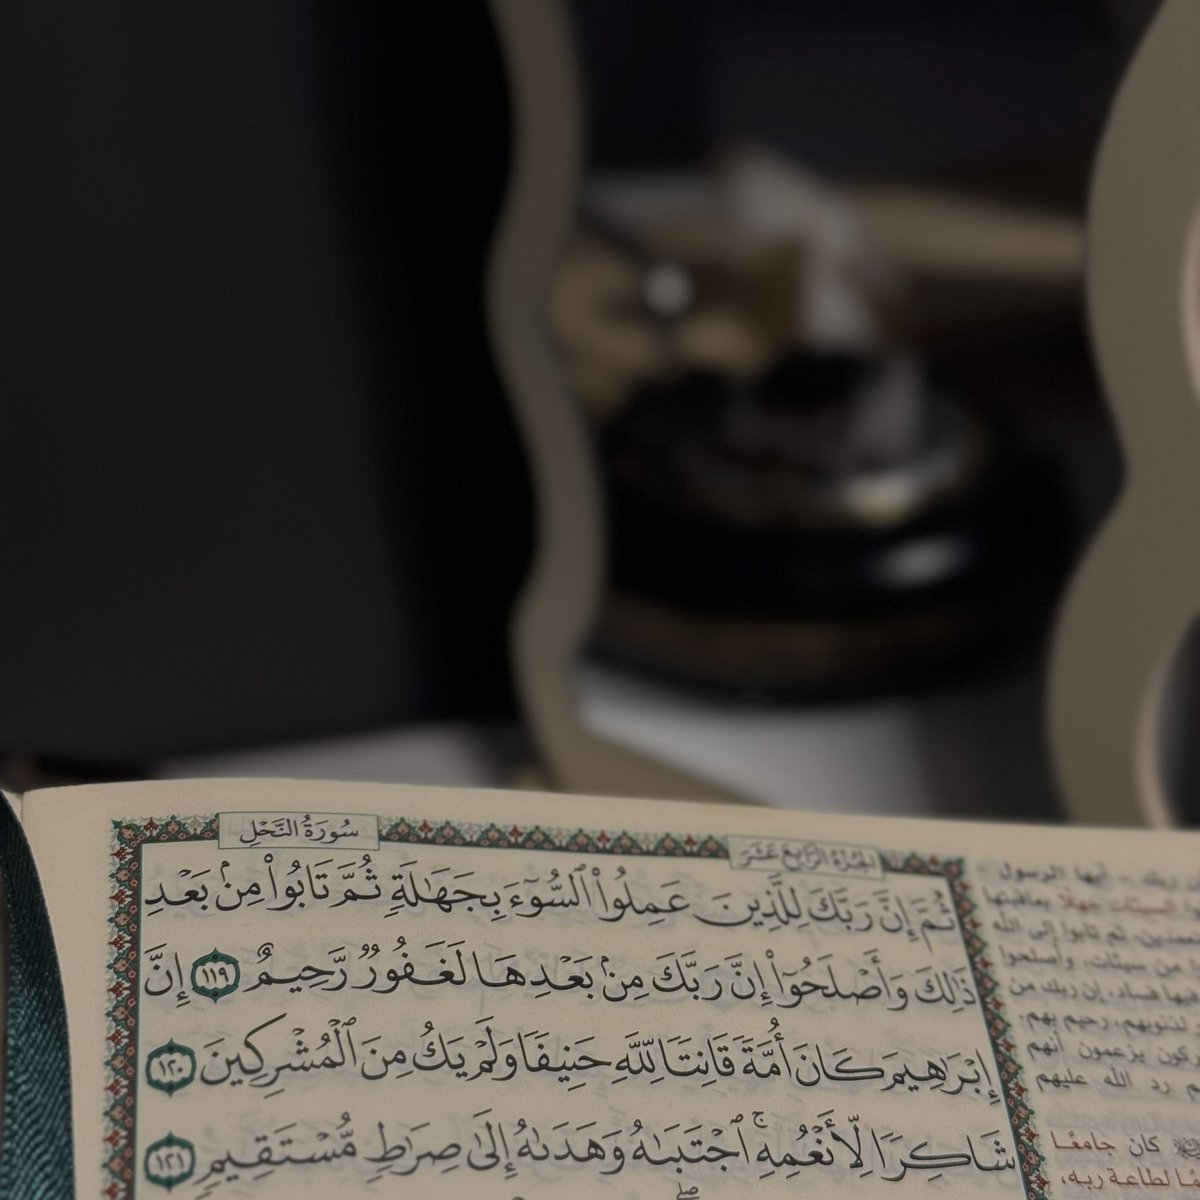 سُورَةُ النَّحْلِ
الجُزْءُ الرَّابِعَ عَشَرَ
ثُمَّ إِنَّ رَبَّكَ لِلَّذِينَ عَمِلُوا۟ ٱلسُّوٓءَ بِجَهَٰلَةٍ ثُمَّ تَابُوا۟ مِنۢ بَعْدِ
ذَٰلِكَ وَأَصْلَحُوٓا۟ إِنَّ رَبَّكَ مِنۢ بَعْدِهَا لَغَفُورٌ رَّحِيمٌ ١١٩ إِنَّ
إِبْرَٰهِيمَ كَانَ أُمَّةً قَانِتًا لِّلَّهِ حَنِيفًا وَلَمْ يَكُ مِنَ ٱلْمُشْرِكِينَ ١٢٠
شَاكِرًا لِّأَنْعُمِهِ ۚ ٱجْتَبَىٰهُ وَهَدَىٰهُ إِلَىٰ صِرَٰطٍ مُّسْتَقِيمٍ ١٢١
ربك - أيها الرسول -
السيئات جهلًا بعاقبتها
ثم تابوا إلى الله
من سيئات، وأصلحوا
فساد، إن ربك من
لذنوبهم، رحيم بهم.
يزعمون أنهم
رد الله عليهم
كان جامعًا
لطاعة ربه،